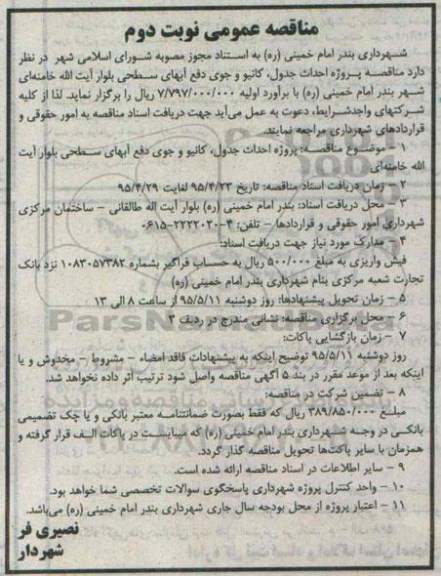 مناقصه عمومی نوبت دوم
شهرداری بندر امام خمینی (ره) به استناد مجوز مصوبه شورای اسلامی شهر در نظر
دارد مناقصه پروژه احداث جدول، کانیو و جوی دفع آبهای سطحی بلوار آیت الله خامنه‌ای
شهر بندر امام خمینی (ره) با برآورد اولیه ۷/۷۹۷/۰۰۰/۰۰۰ ریال را برگزار نماید. لذا از کلیه
شرکتهای واجدشرایط، دعوت به عمل می‌آید جهت دریافت اسناد مناقصه به امور حقوقی و
قراردادهای شهرداری مراجعه نمایند.
۱ – موضوع مناقصه: پروژه احداث جدول، کانیو و جوی دفع آبهای سطحی بلوار آیت
الله خامنه‌ای
۲ – زمان دریافت اسناد مناقصه: تاریخ ۹۵/۴/۲۳ لغایت ۹۵/۴/۲۹
۳ – محل دریافت اسناد: بندر امام خمینی (ره) بلوار آیت اله طالقانی – ساختمان مرکزی
شهرداری امور حقوقی و قراردادها – تلفن: ۴-۲۲۲۲۰۳۰-۰۶۱۵
۴ – مدارک مورد نیاز جهت دریافت اسناد:
فیش واریزی به مبلغ ۵۰۰/۰۰۰ ریال به حساب فراگیر بشماره ۱۰۸۳۰۵۷۳۸۲ نزد بانک
تجارت شعبه مرکزی بنام شهرداری بندر امام خمینی (ره)
۵ – زمان تحویل پیشنهادها: روز دوشنبه ۹۵/۵/۱۱ از ساعت ۸ الی ۱۳
۶ – محل برگزاری مناقصه: نشانی مندرج در ردیف ۳
۷ – زمان بازگشایی پاکات:
روز دوشنبه ۹۵/۵/۱۱ توضیح اینکه به پیشنهادات فاقد امضاء – مشروط – مخدوش و یا
اینکه بعد از موعد مقرر در بند ۵ آگهی مناقصه واصل شود ترتیب اثر داده نخواهد شد.
۸ – تضمین شرکت در مناقصه:
مبلغ ۳۸۹/۸۵۰/۰۰۰ ریال که فقط بصورت ضمانتنامه معتبر بانکی و یا چک تضمیمی
بانکی در وجه شهرداری بندر امام خمینی (ره) که میبایست در پاکات الف قرار گرفته و
همزمان با سایر پاکت‌ها تحویل مناقصه گذار گردد.
۹ – سایر اطلاعات در اسناد مناقصه ارائه شده است.
۱۰ – واحد کنترل پروژه شهرداری پاسخگوی سوالات تخصصی شما خواهد بود.
۱۱ – اعتبار پروژه از محل بودجه سال جاری شهرداری بندر امام خمینی (ره) می‌باشد.
نصیری فر
شهردار